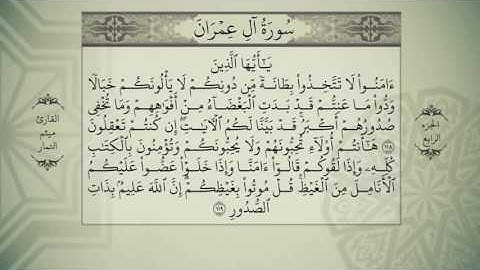 سُورَةُ آلِ عِمْرَانَ
يَٰٓأَيُّهَا ٱلَّذِينَ
ءَامَنُوا۟ لَا تَتَّخِذُوا۟ بِطَانَةً مِّن دُونِكُمْ لَا يَأْلُونَكُمْ خَبَالًا
وَدُّوا۟ مَا عَنِتُّمْ قَدْ بَدَتِ ٱلْبَغْضَآءُ مِنْ أَفْوَٰهِهِمْ وَمَا تُخْفِى
صُدُورُهُمْ أَكْبَرُ ۚ قَدْ بَيَّنَّا لَكُمُ ٱلْءَايَٰتِ إِن كُنتُمْ تَعْقِلُونَ
١١٨ هَٰٓأَنتُمْ أُو۟لَآءِ تُحِبُّونَهُمْ وَلَا يُحِبُّونَكُمْ وَتُؤْمِنُونَ بِٱلْكِتَٰبِ
كُلِّهِۦ وَإِذَا لَقُوكُمْ قَالُوٓا۟ ءَامَنَّا وَإِذَا خَلَوْا۟ عَضُّوا۟ عَلَيْكُمُ
ٱلْأَنَامِلَ مِنَ ٱلْغَيْظِ ۚ قُلْ مُوتُوا۟ بِغَيْظِكُمْ ۗ إِنَّ ٱللَّهَ عَلِيمٌۢ بِذَاتِ
ٱلصُّدُورِ ١١٩
الجزء
الرابع
القارئ
ميثم
التمار